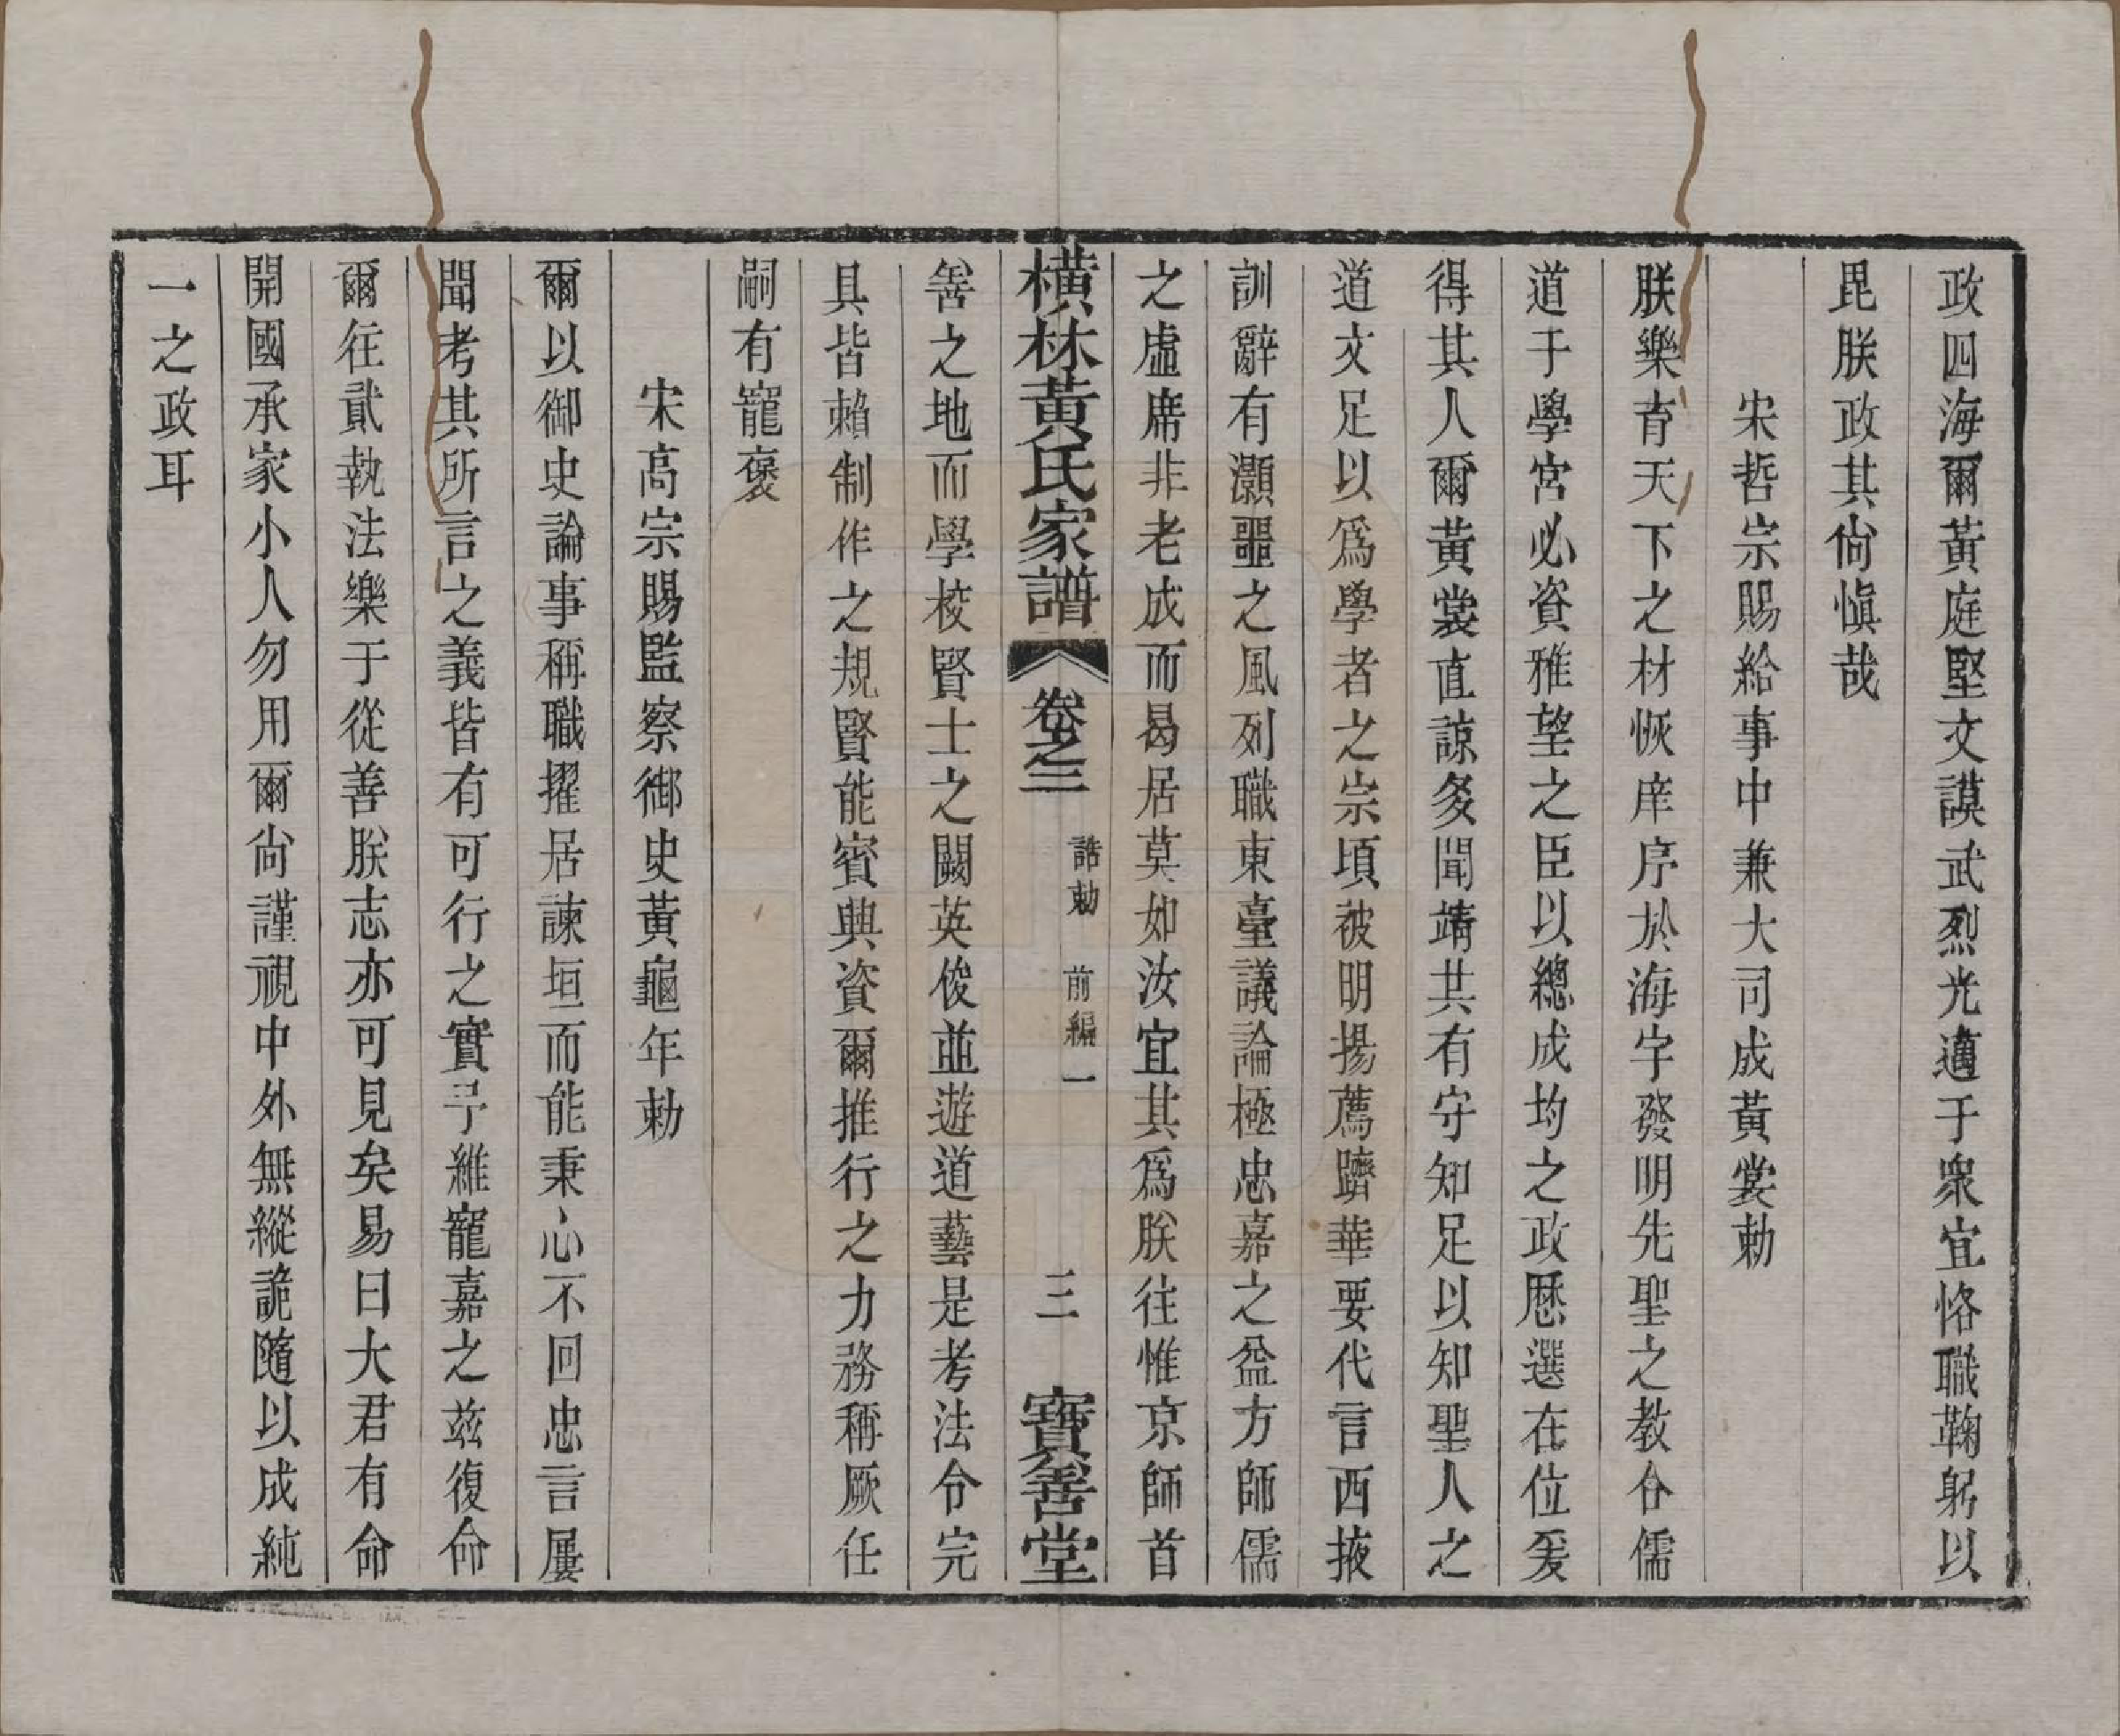 政四海爾黃庭堅文謨武烈光邁于衆宜恪職鞠躬以
毘朕政其尙愼哉
宋哲宗賜給事中兼大司成黃裳勅
朕樂育天下之材恢庠序於海宇發明先聖之教合儒
道于學宮必資雅望之臣以總成均之政厯選在位爰
得其人爾黃裳直諒多聞靖共有守知足以知聖人之
道文足以爲學者之宗頃被明揚薦躋華要代言西掖
訓辭有灝噩之風列職東臺議論極忠嘉之益方師儒
之虛席非老成而曷居莫如汝宜其爲朕往惟京師首
橫林黃氏家譜 卷之三 誥勅 前編一 三 寶善堂
善之地而學校賢士之闕英俊並遊道藝是考法令完
具皆賴制作之規賢能賓興資爾推行之力務稱厥任
嗣有寵褒
宋高宗賜監察御史黃龜年勅
爾以御史論事稱職擢居諫垣而能秉心不回忠言屢
聞考其所言之義皆有可行之實予維寵嘉之兹復命
爾往貳執法樂于從善朕志亦可見矣易曰大君有命
開國承家小人勿用爾尙謹視中外無縱詭隨以成純
一之政耳